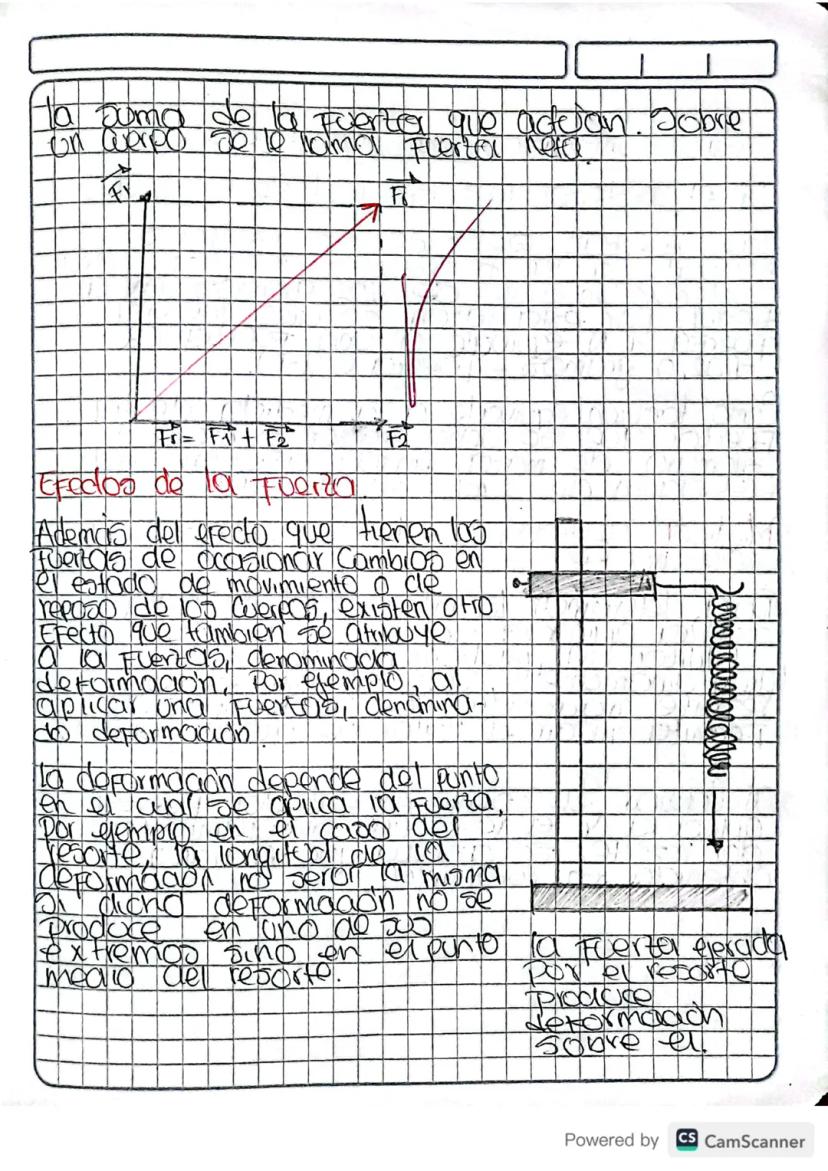 la suma de la Fuerza que actúan. Sobre
un cuerpo se le llama Fuerza neta.
F1
Fr
Fr = F1 + F2
F2
EFectos de la Fuerza.
Además del efecto que tienen las
fuerzas de ocasionar Cambios en
el estado de movimiento o de
reposo de los Cuerpos, existen otro
EFecto que también se atribuye
a la Fuerzas, denominada
deformación, Por ejemplo, al
aplicar una Fuerzas, denomina-
do deformación
la deformación depende del punto
en el cual se aplica la Fuerza,
Por ejemplo en el caso del
resorte, la longitud de la
deformación no será la misma
si dicha deformación no se
produce en uno de sus
extremos sino en el punto
medio del resorte.
la Fuerza ejercida
Por el resorte
Produce
deformación
sobre el.
Powered by CS CamScanner